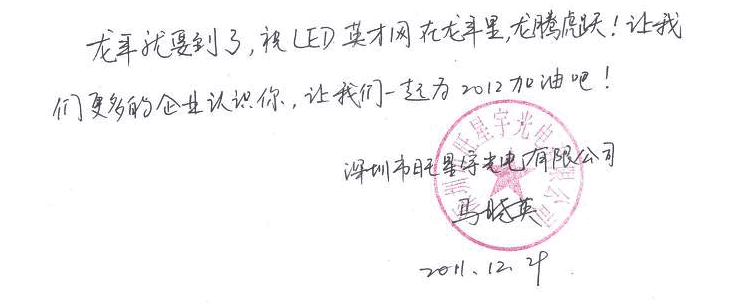 龙年就要到了,祝LED英才网在龙年里,龙腾虎跃!让我
们更多的企业认识你,让我们一起为2012加油吧!
深圳市旺星宇光电有限公司
马晓英
2011.12.29